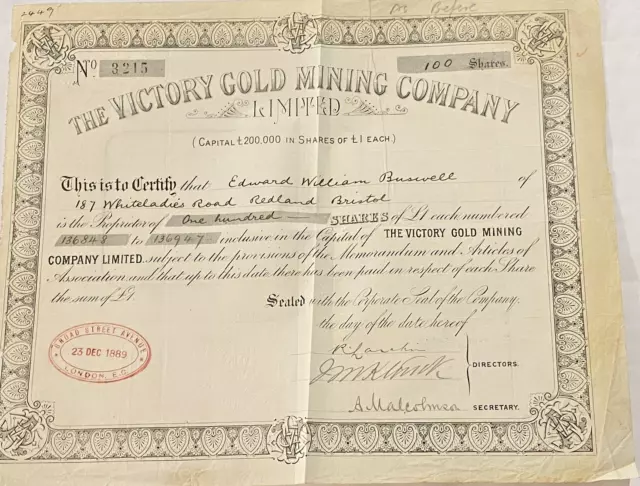 2449
Before
No 3215
100 Shares.
THE VICTORY GOLD MINING COMPANY
LIMITED
(CAPITAL £200,000 IN SHARES OF £1 EACH.)
This is to Certify that Edward William Buswell of
187 Whiteladies Road Redland Bristol
is the Proprietor of One hundred SHARES of £1 each numbered
136848 to 136947 inclusive in the Capital of THE VICTORY GOLD MINING
COMPANY LIMITED. subject to the provisions of the Memorandum and Articles of
Association and that up to this date there has been paid in respect of each Share
the sum of £1.
Sealed with the Corporate Seal of the Company,
the day of the date hereof
BROAD STREET AVENUE
23 DEC 1889
LONDON, E.C.
DIRECTORS.
A. Malcolmson SECRETARY.